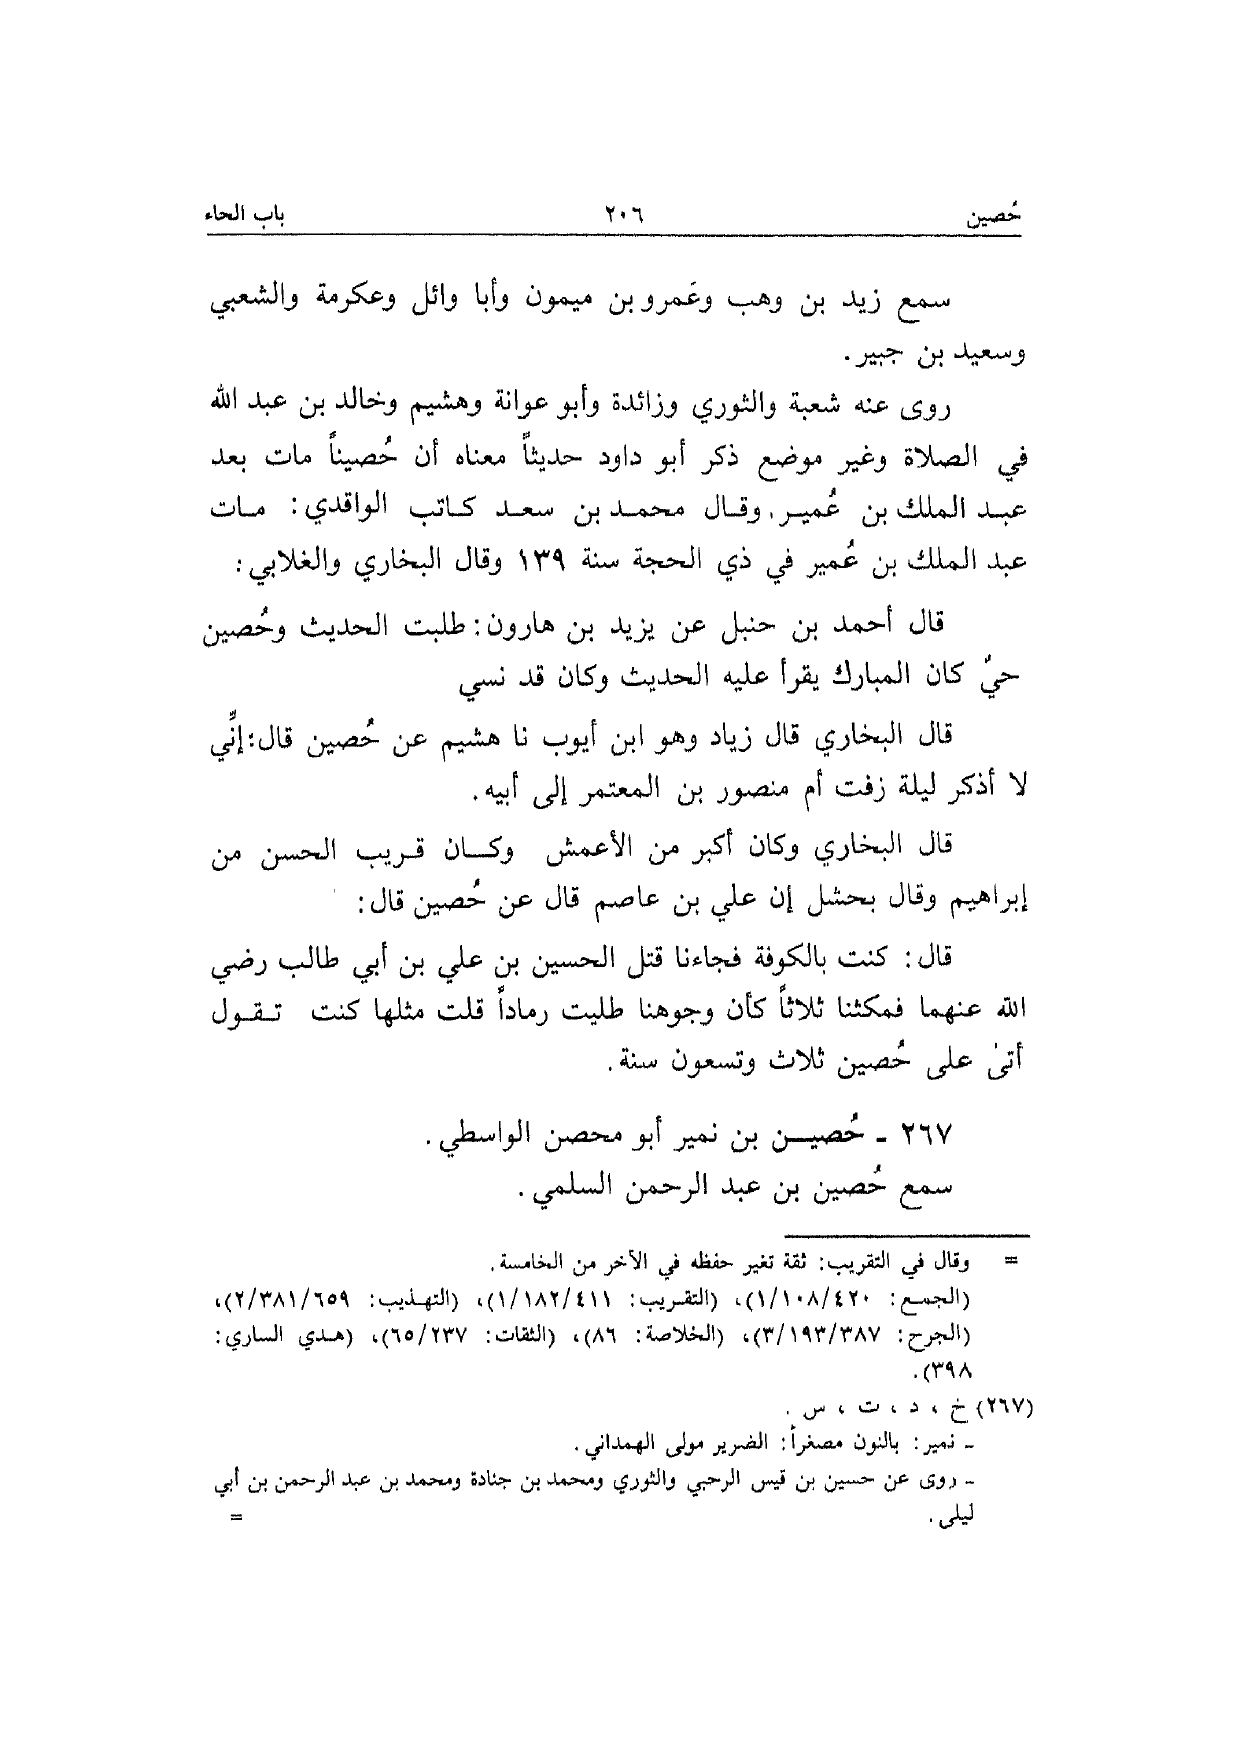 حُصين ٢٠٦ باب الحاء
سمع زيد بن وهب وعَمرو بن ميمون وأبا وائل وعكرمة والشعبي
وسعيد بن جبير.
روى عنه شعبة والثوري وزائدة وأبو عوانة وهشيم وخالد بن عبد الله
في الصلاة وغير موضع ذكر أبو داود حديثاً معناه أن حُصيناً مات بعد
عبد الملك بن عُمير. وقال محمد بن سعد كاتب الواقدي: مات
عبد الملك بن عُمير في ذي الحجة سنة ١٣٩ وقال البخاري والغلابي:
قال أحمد بن حنبل عن يزيد بن هارون: طلبت الحديث وحُصين
حيٌ كان المبارك يقرأ عليه الحديث وكان قد نسي
قال البخاري قال زياد وهو ابن أيوب نا هشيم عن حُصين قال: إنِّي
لا أذكر ليلة زفت أم منصور بن المعتمر إلى أبيه.
قال البخاري وكان أكبر من الأعمش وكان قريب الحسن من
إبراهيم وقال بحشل إن علي بن عاصم قال عن حُصين قال:
قال: كنت بالكوفة فجاءنا قتل الحسين بن علي بن أبي طالب رضي
الله عنهما فمكثنا ثلاثاً كأن وجوهنا طليت رماداً قلت مثلها كنت تقول
أتىٰ على حُصين ثلاث وتسعون سنة.
٢٦٧ - حُصين بن نمير أبو محصن الواسطي.
سمع حُصين بن عبد الرحمن السلمي.
= وقال في التقريب: ثقة تغير حفظه في الآخر من الخامسة.
(الجمع: ١/١٠٨/٤٢٠)، (التقريب: ١/١٨٢/٤١١)، (التهذيب: ٢/٣٨١/٦٥٩)،
(الجرح: ٣/١٩٣/٣٨٧)، (الخلاصة: ٨٦)، (الثقات: ٦٥/٢٣٧)، (هدي الساري:
٣٩٨).
(٢٦٧) خ، د، ت، س.
- نمير: بالنون مصغراً: الضرير مولى الهمداني.
- روى عن حسين بن قيس الرحبي والثوري ومحمد بن جنادة ومحمد بن عبد الرحمن بن أبي
ليلى. =